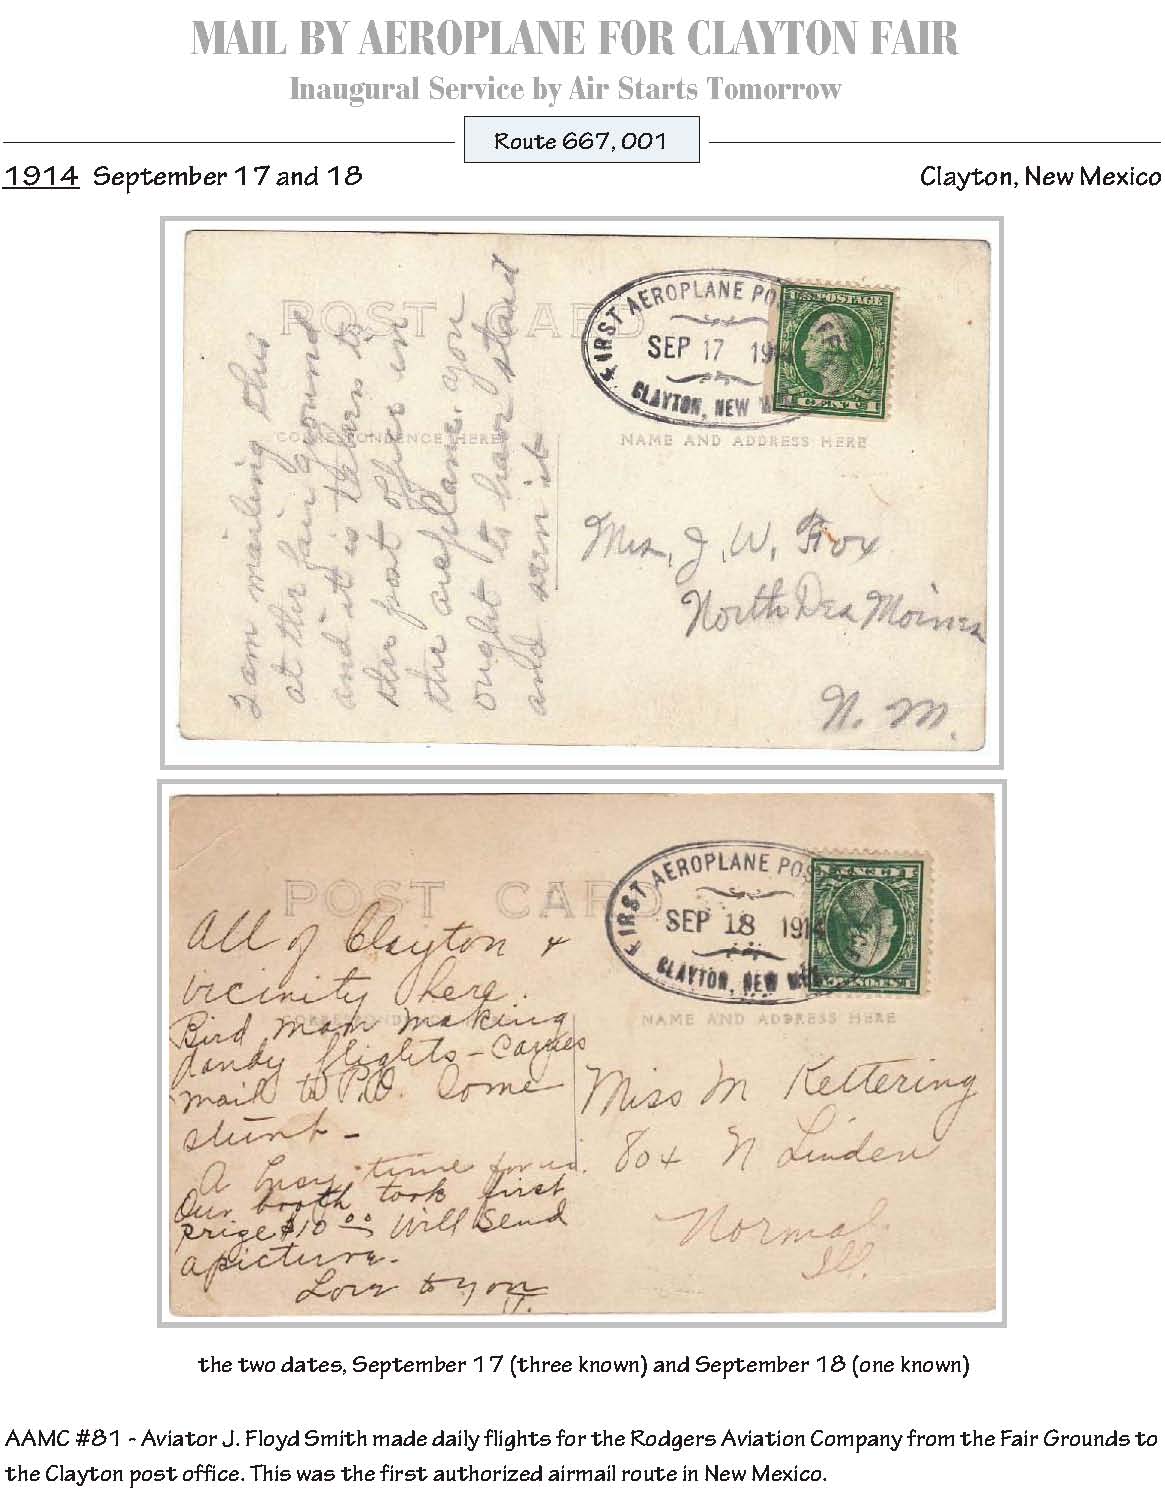 MAIL BY AEROPLANE FOR CLAYTON FAIR
Inaugural Service by Air Starts Tomorrow
Route 667, 001
1914 September 17 and 18
Clayton, New Mexico
POST CARD
FIRST AEROPLANE PO
SEP 17 19
CLAYTON, NEW
U.S. POSTAGE
1 CENT 1
CORRESPONDENCE HERE
NAME AND ADDRESS HERE
I am mailing this
at the fair ground
and it is taken to
the post office in
the areplane. you
ought to have staid
and seen it
Mrs. J. W. Fox
North Des Moines
N. M.
POST CARD
FIRST AEROPLANE POS
SEP 18 1914
CLAYTON, NEW
CORRESPONDENCE
NAME AND ADDRESS HERE
All of Clayton &
vicinity here.
Bird man making
dandy flights - Carries
mail to P.O. Some
stunt -
A busy time for us.
Our booth took first
prize $10 00 Will send
a picture.
Love to you
Miss M Kettering
804 N Linden
Normal
Ill.
the two dates, September 17 (three known) and September 18 (one known)
AAMC #81 - Aviator J. Floyd Smith made daily flights for the Rodgers Aviation Company from the Fair Grounds to
the Clayton post office. This was the first authorized airmail route in New Mexico.